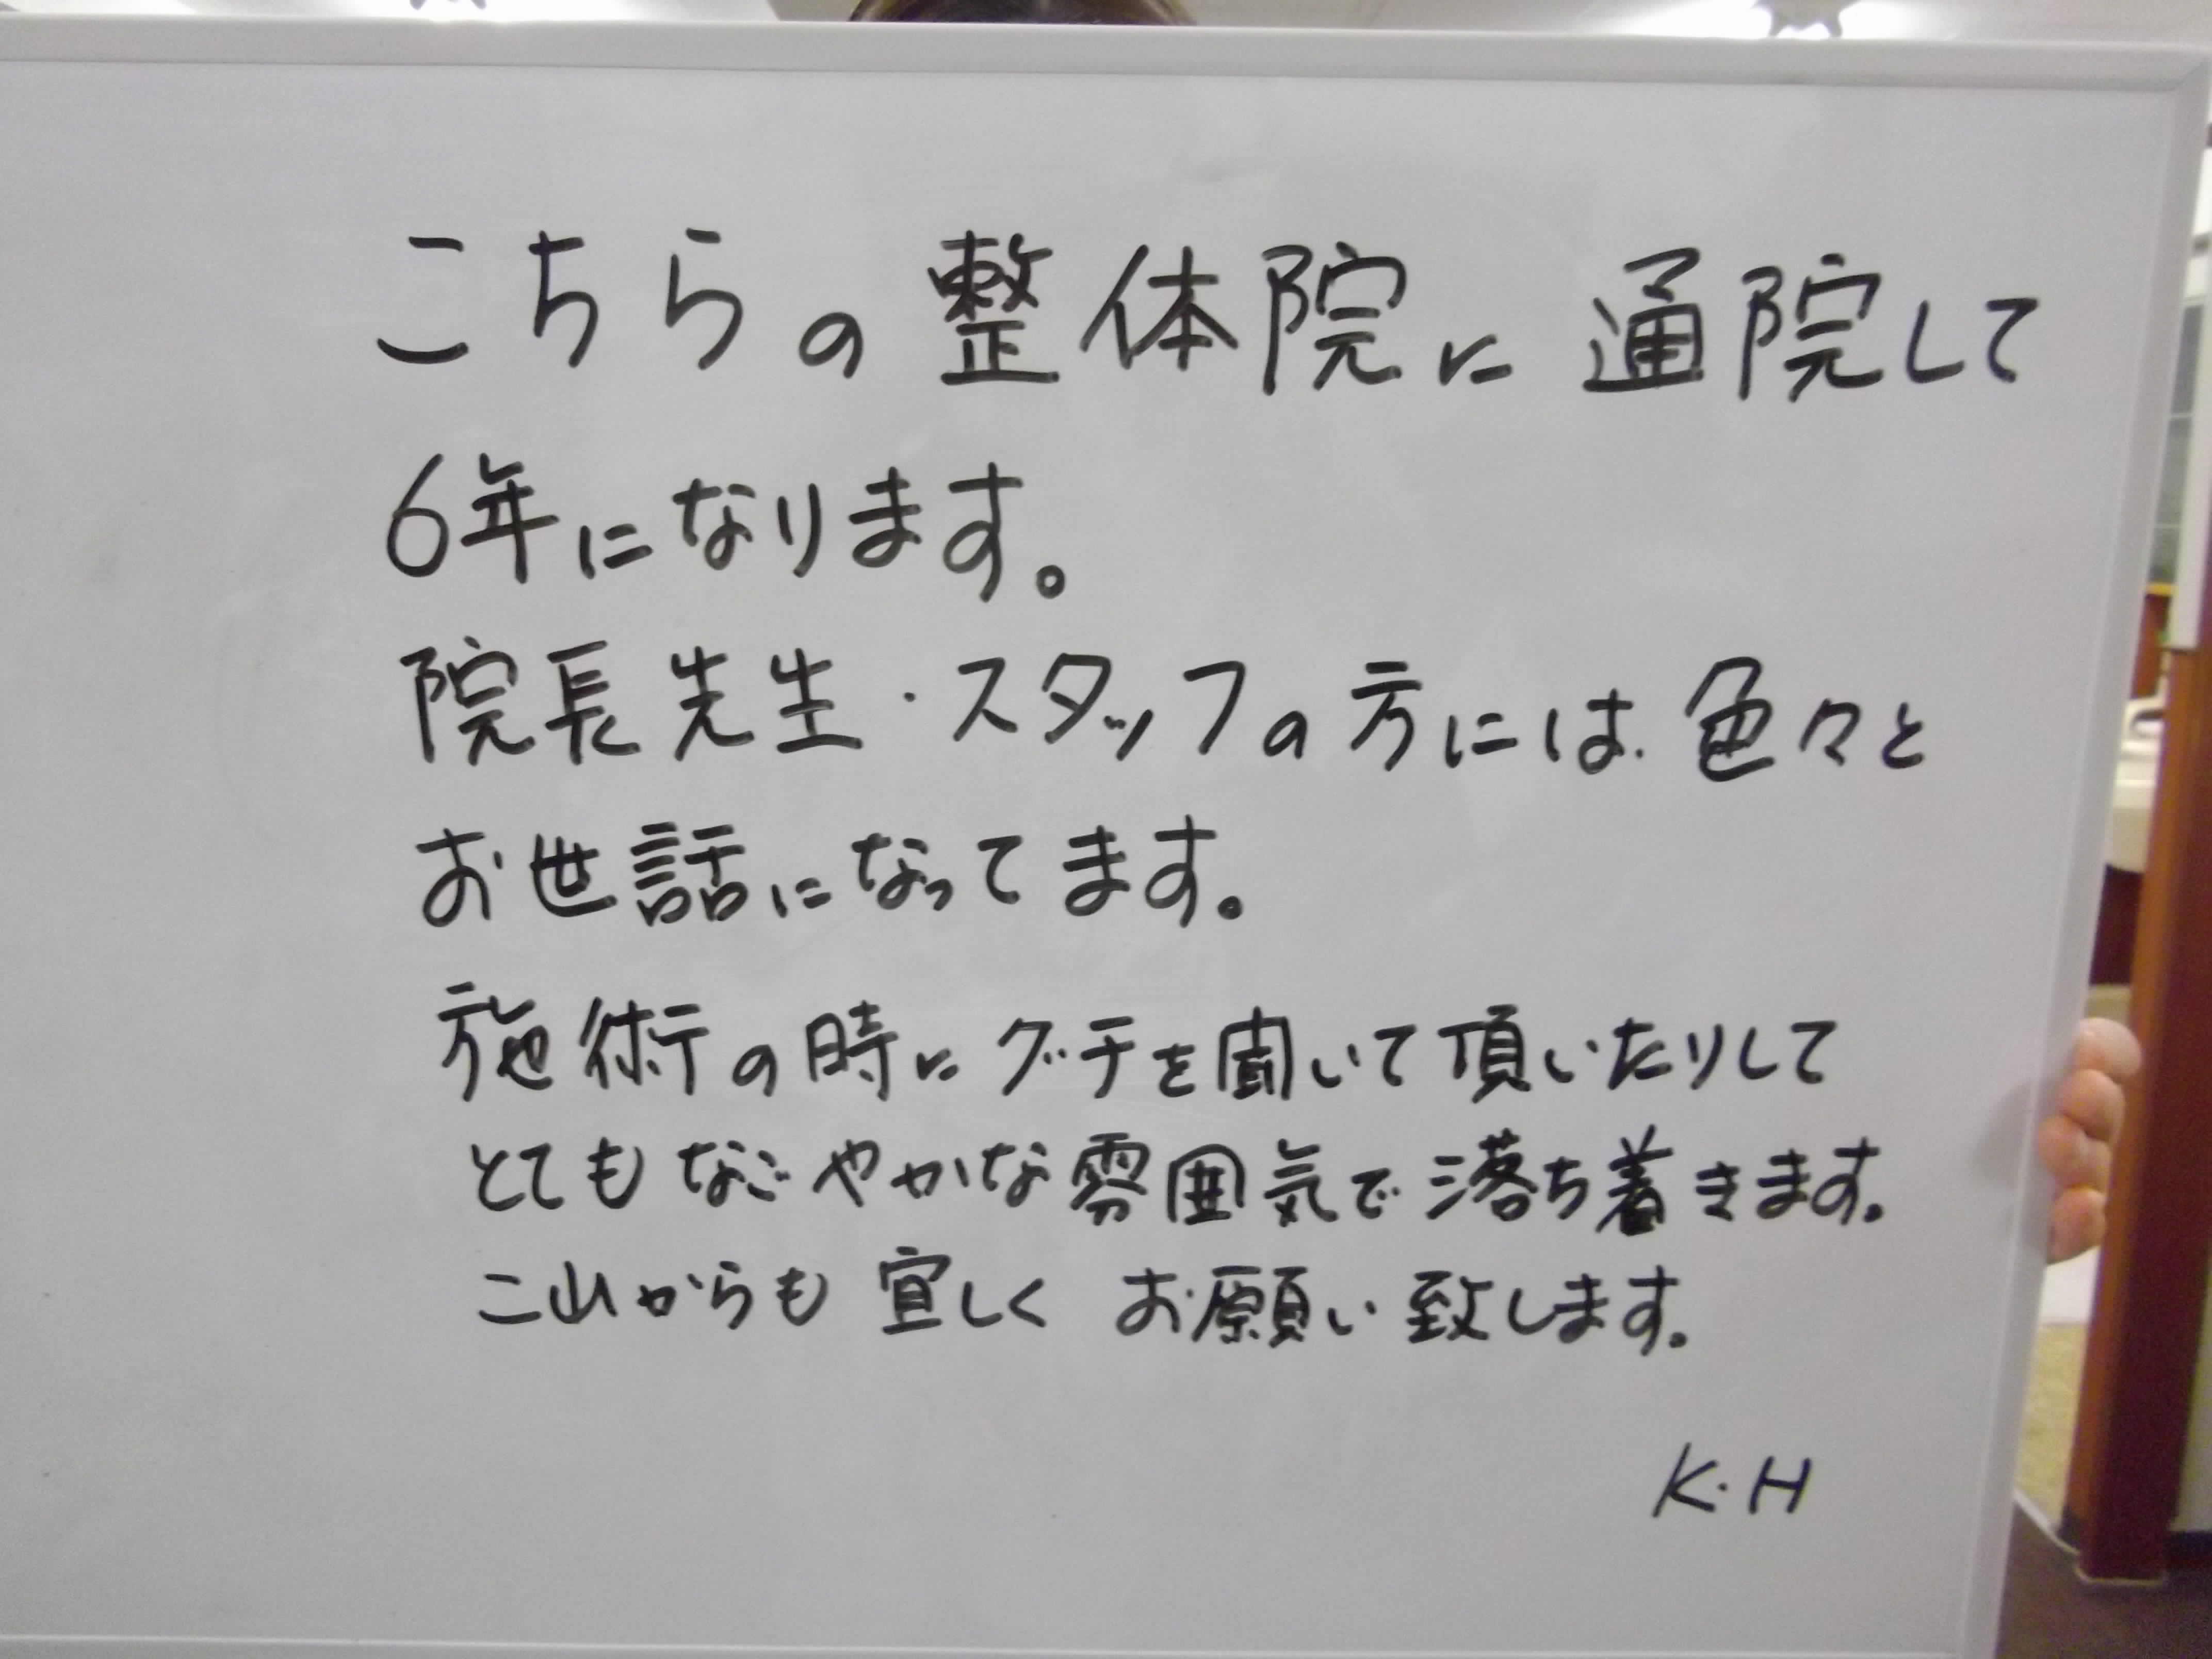 こちらの整体院に通院して
6年になります。
院長先生・スタッフの方には色々と
お世話になってます。
施術の時にグチを聞いて頂いたりして
とてもなごやかな雰囲気で落ち着きます。
これからも宜しくお願い致します。
K.H